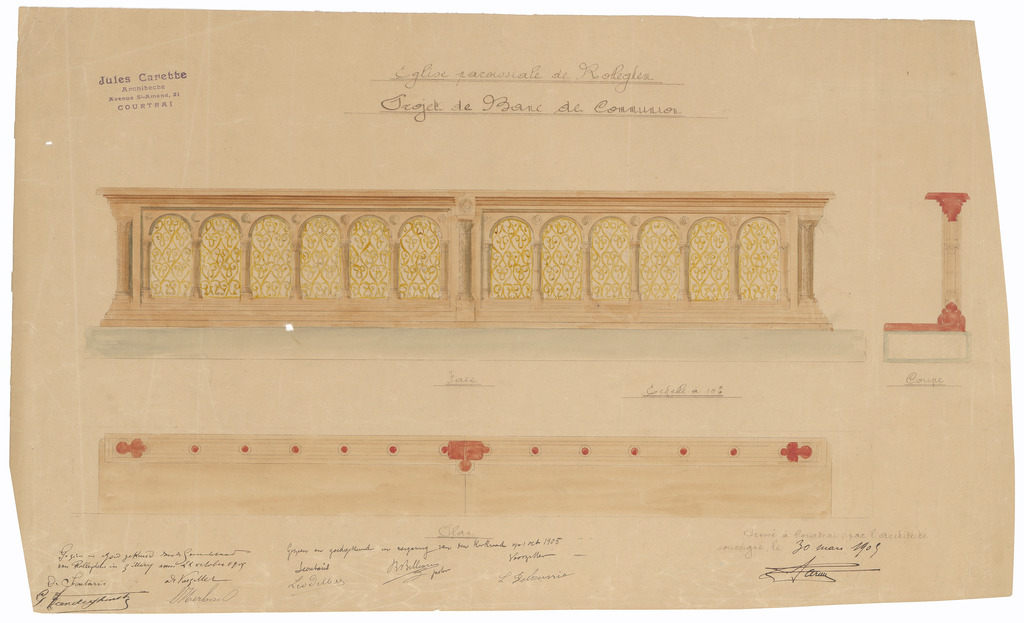 Jules Carette
Architecte
Avenue St-Amand, 21
COURTRAI
Église paroissiale de Rolleghem
Projet de Banc de Communion
Face
Echelle à 10%
Coupe
Plan
Gezien en goedgekeurd door den Gemeenteraad
van Rolleghem in zitting van 21 october 1905
De Secretaris
de Voorzitter
Gezien en goedgekeurd in vergadering van den Kerkraad 1 oct 1905
Voorzitter
Dressé à Courtrai, par l'architecte
soussigné le 30 mars 1905